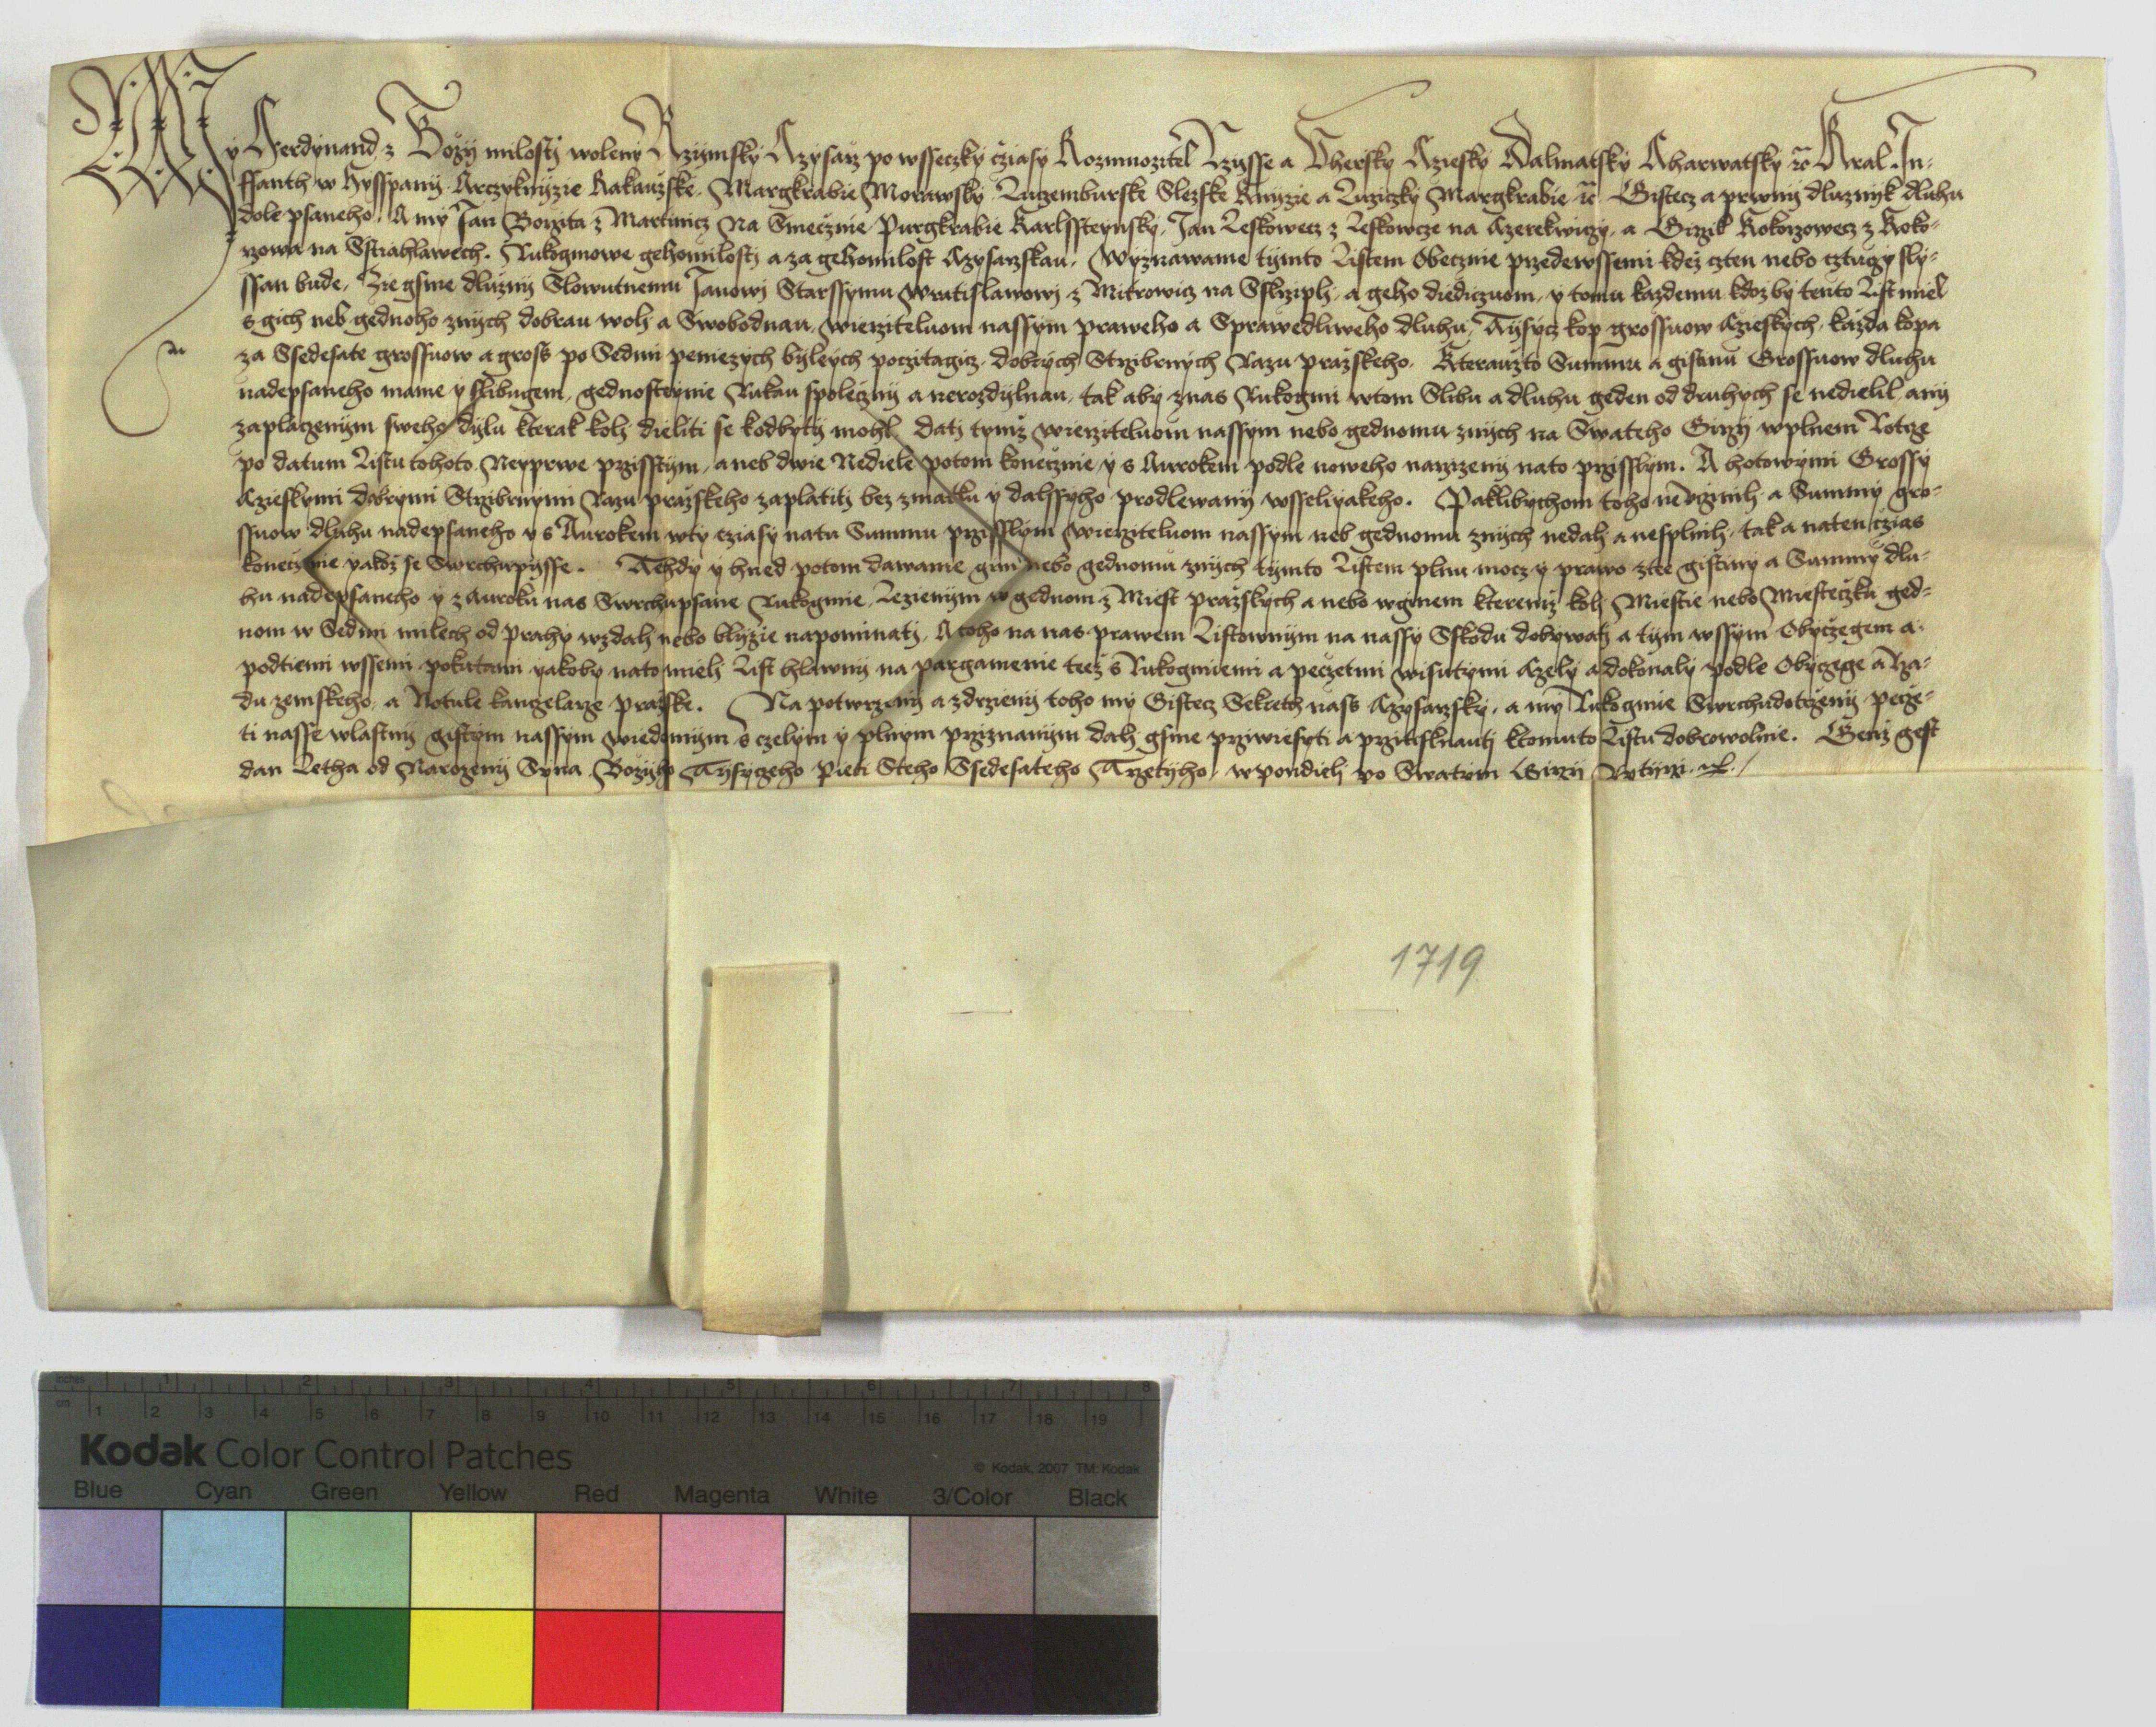 My Ferdynand z Bozy milosti woleny Rzymsky Czysarz po wsseczky cziasy Rozmnozitel Rzysse a Vhersky Cziesky Dalmatsky Charwatsky ꝛc̃ Kral. In-
ffanth w Hysspany. Arczyknyzie Rakauzske. Margkrabie Morawsky. Luczemburske Slezske Knyzie a Luziczky Margkrabie ꝛc̃ Gistecz a prwny dluznyk dluhu
dole psaneho. A my Jan Borzita z Martinicz Na Smecznie Purgkrabie Karlssteynsky, Jan Leskowecz z Leskowcze na Czerekwiczy, a Girzik Kokorzowecz z Koko-
rzowa na Sstiahlawech. Rukogmowe gehomilosti a za gehomilost Czysarzskau. Wyznawame tymto Listem Obecznie przedewssemi kdez czten nebo cztugy sly-
ssan bude, Zie gsme dluzny Slowutnemu Janowj Starssymu Wratislawowj z Mitrowicz na a geho diediczuom, y tomu kazdemu kdoz by tento List miel
s gich neb gednoho znych dobrau woly a Swobodnau, Wierziteluom nassym praweho a Sprawedliweho dluhu, Tisycz kop grossuow Czieskych, kazda kopa
za Ssedesate grossuow a gross po Sedmi peniezych byleych poczitagicz, dobrych Strzibrnych Razu prazskeho. Kterauzto Summu a gistinu Grossuow dluhu
nadepsaneho mame y slibugem, gednosteynie Rukau spoleczny a nerozdylnau, tak aby znas Rukogmi wtom Slibu a dluhu geden od druhych se nedielil, any
zaplaczenym sweho dylu kterak kolj dieliti se kodbyty mohl. Datj tymz wierziteluom nassym nebo gednomu znych na Swateho Girzy wplnem Rotcze
po datum Listu tohoto Neyprwe przisstym, aneb dwie Nediele potom konecznie y s Aurokem podle noweho narzizeny nato przisslym. A hotowymi Grossy
Czieskymi dobrymi Strzibrnymi Razu prazskeho zaplatitj bez zmatku y dalssyho prodlewany wsseliyakeho. Paklibychom toho nevczinili a Summy gro-
ssuow dluhu nadepsaneho y s Aurokem wty cziasy natu Summu przisslym wierziteluom nassym neb gednomu znych nedali a nesplnili, tak a naten czias
konecznie yakoz se Swrchupysse. Tehdy y hned potom dawame gim nebo gednomu znych tymto Listem plnu mocz y prawo ztee gistiny a Summy dlu-
hu nadepsaneho y z Auroku nas Swrchupsane Rukogmie, Lezienym w gednom z Miest prazskych a nebo wginem kteremz kolj Miestie nebo Miesteczku ged-
nom w Sedmi milech od Prahy wzdalj nebo blyzie napominati, A toho na nas prawem Listownym na nassy Sskodu dobywati a tym wssym Obyczegem a
podtiemi wssemi pokutami yakoby nato mieli List hlawny na pargamenie teez s Rukogmiemi a peczetmi wisutymi Czely a dokonaly podle Obyczege a Rza-
du zemskeho, a Notule kanczelarze Prazske. Na potwrzeny a zdrzieny toho my Gistecz Sekreth nass Czysarzsky, a my Rukogmie Swrchudotczeny, pecze-
ti nasse wlastny gistym nassym wiedomym s czelym y plnym przyznanym dali gsme przywiesyti a przitisknauti ktomuto Listu dobrowolnie. Genz gest
dan Letha od Narozeny Syna Bozyho Tisyczeho Pieti Steho Ssedesateho Trzetyho, w pondieli po Swatym Girzy Rytirzi.
1719
Kodak Color Control Patches
© Kodak, 2007 TM: Kodak
inches 1 2 3 4 5 6 7 8
cm 1 2 3 4 5 6 7 8 9 10 11 12 13 14 15 16 17 18 19
Blue Cyan Green Yellow Red Magenta White 3/Color Black